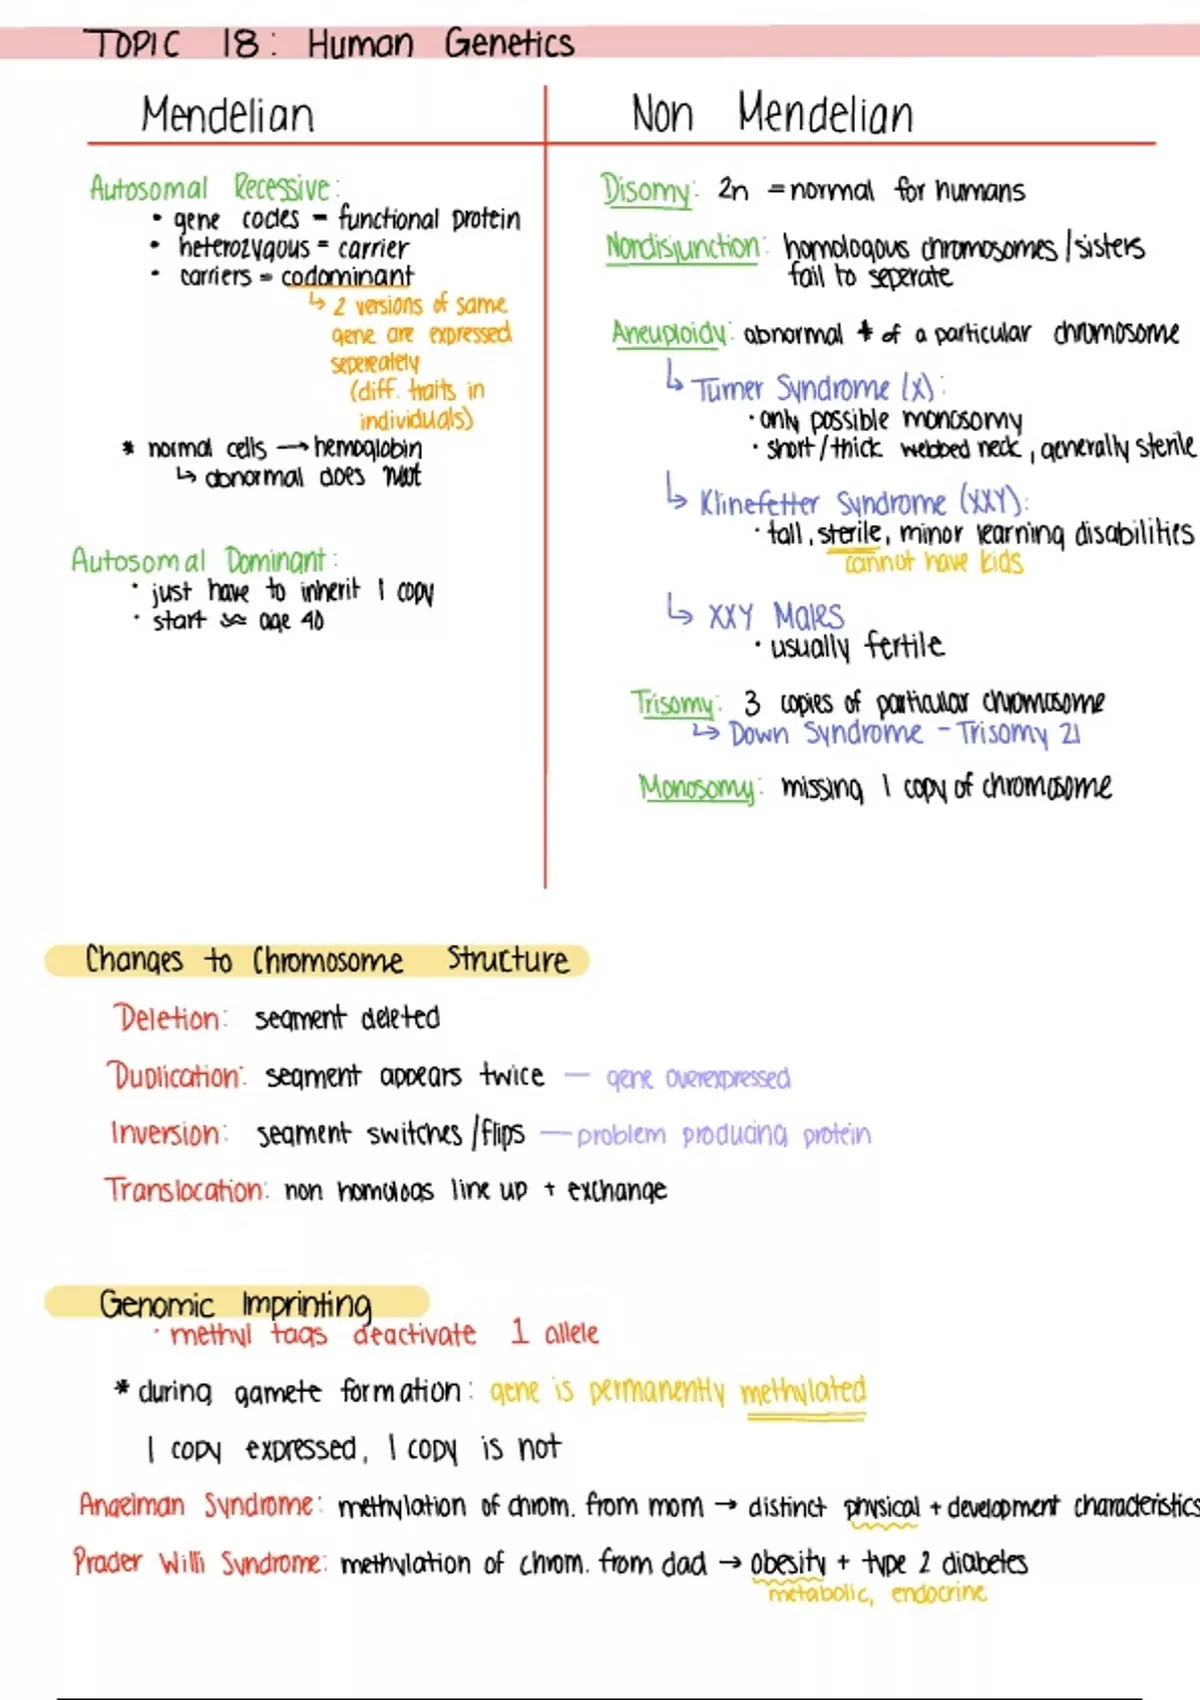 TOPIC 18: Human Genetics
Mendelian
Autosomal Recessive:
• gene codes = functional protein
• heterozygous = carrier
• carriers = codominant
↳ 2 versions of same
gene are expressed
sepereately
(diff. traits in
individuals)
* normal cells → hemoglobin
↳ abnormal does not
Autosomal Dominant:
• just have to inherit 1 copy
• start ≈ age 40
Non Mendelian
Disomy: 2n = normal for humans
Nondisjunction: homologous chromosomes/sisters
fail to seperate
Aneuploidy: abnormal # of a particular chromosome
↳ Turner Syndrome (X):
• only possible monosomy
• short/thick webbed neck, generally sterile
↳ Klinefetter Syndrome (XXY):
• tall, sterile, minor learning disabilities
cannot have kids
↳ XXY Males
• usually fertile
Trisomy: 3 copies of particular chromosome
↳ Down Syndrome - Trisomy 21
Monosomy: missing 1 copy of chromosome
Changes to Chromosome Structure
Deletion: segment deleted
Duplication: segment appears twice — gene overexpressed
Inversion: segment switches/flips — problem producing protein
Translocation: non homologs line up + exchange
Genomic Imprinting
• methyl tags deactivate 1 allele
* during gamete formation: gene is permanently methylated
1 copy expressed, 1 copy is not
Angelman Syndrome: methylation of chrom. from mom → distinct physical + development characteristics
Prader Willi Syndrome: methylation of chrom. from dad → obesity + type 2 diabetes
metabolic, endocrine